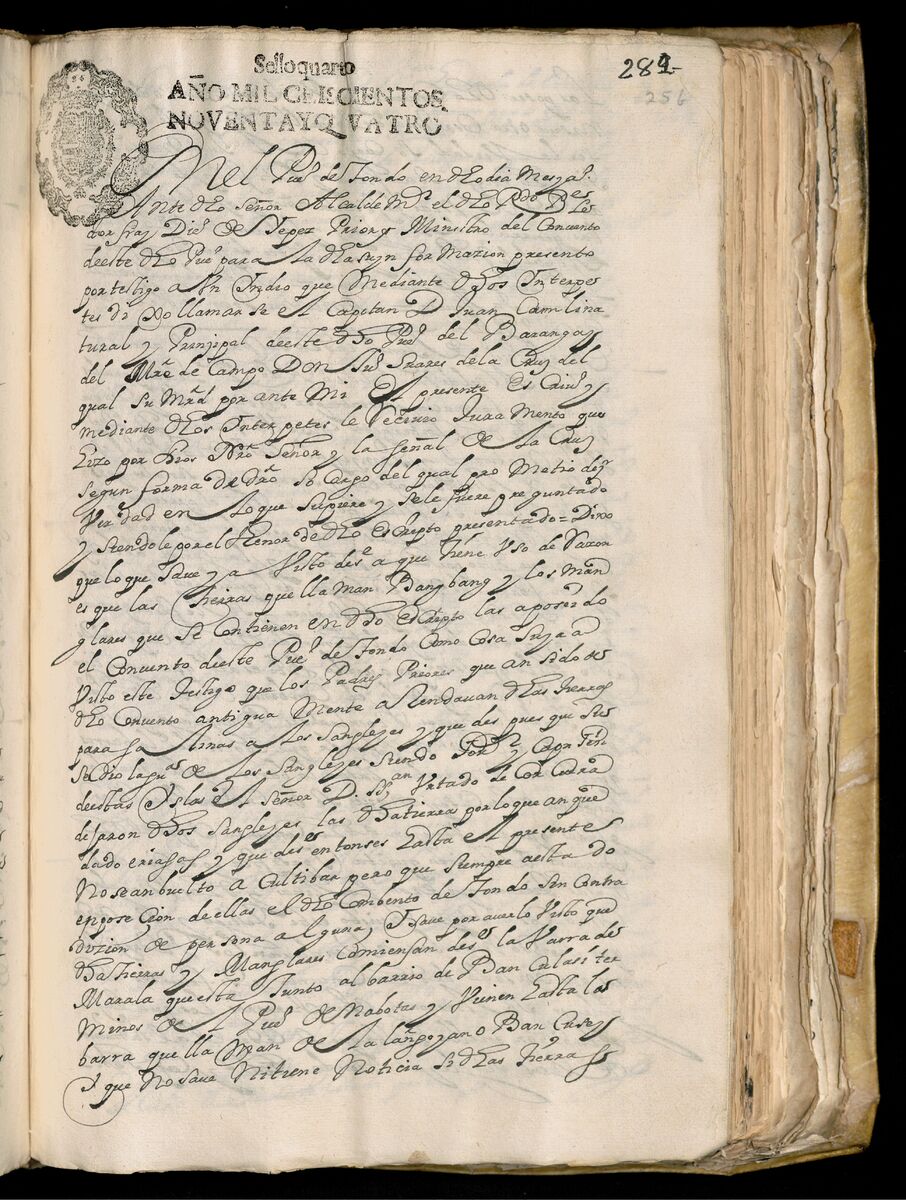 Sello quarto
AÑO MIL CEISCIENTOS
NOVENTAYQVATRO
282
256
En el Pueº de Tondo en dho dia Mes y aº
Ante dho Señor Alcalde Mor el dho Pdo P Le
tor fray Dieº de Yepez Prior y Ministro del Convento
deeste dho Pueº para la dha ynformazion presento
por testigo a Un Yndio que Mediante dhos Interpe
tes dixo llamarse el Capitan D Juan Camli na
tural y Prinsipal deeste dho Pueº del Barangay
del Mrẽ de Campo Don Juº Suares dela Cruz del
qual su Mrd por ante Mi el presente Escriuº y
mediante dhos Interpetes le Receiuio Jura Mento que
hizo por Dios Nro Señor y la señal de la Cruz
segun forma de dro so Cargo del qual pro Metio dezir
Uerdad en lo que supiere y sele fuere preguntado
y siendole por el thenor de dho escripto presentado = Dixo
que lo que saue y a Uisto desde a que tiene Uso de Razon
es que las tierras que llaman Bangbang y los Man
glares que se contienen en dho escripto las a poseido
el Convento deeste Pueº de Tondo Como Cosa suya a
Uisto este testigo que los Padres Priores que an sido de
dho Convento antigua Mente arrendauan dhas tierras
para salinas a los sangleyes y que des pues que su
sedio la guerra de los sangleyes siendo Gor y Capn Genl
deestas Yslas el Señor D. Sn Urtado de Corcuera
dejaron dhos sangleyes las dhas tierras por lo que an que
dado eriassas y que des entonses hasta el presente
No se an buelto a Cultibar pero que siempre a estado
en pose cion de ellas el dho Combento de Tondo sin Contra
duzion de persona alguna, Y saue por auerlo Uisto que
dhas tierras y Manglares Comiensan desde la Uarra de
Marala que esta Junto al barrio de Ban Culasi ter
minos de el Pueº de Nabotas y Uienen hasta la
barra que llaman de
Y que No saue Ni tiene Noticia si dhas tierras